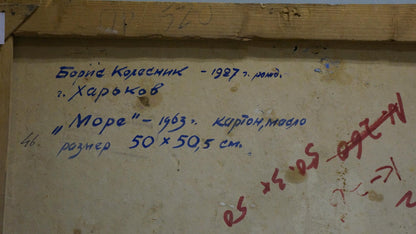 Борис Колесник - 1927 г. рожд.
г. Харьков
„Море" - 1963 г. картон, масло
размер 50 x 50,5 см.
46.
50. 3 x 50